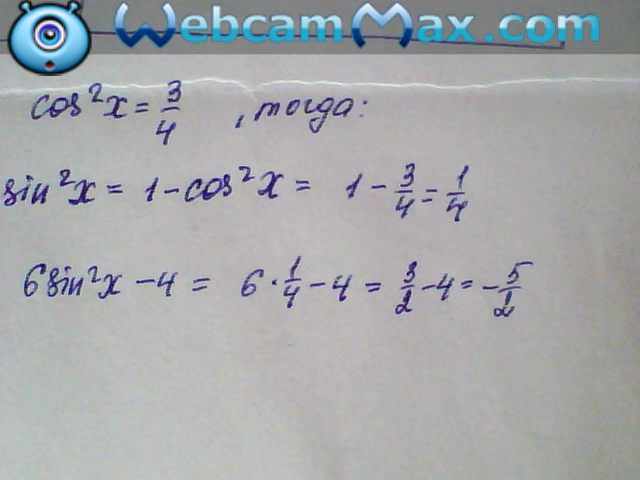 WebcamMax.com
cos²x = 3/4 , тогда:
sin²x = 1 - cos²x = 1 - 3/4 = 1/4
6sin²x - 4 = 6 · 1/4 - 4 = 3/2 - 4 = -5/2